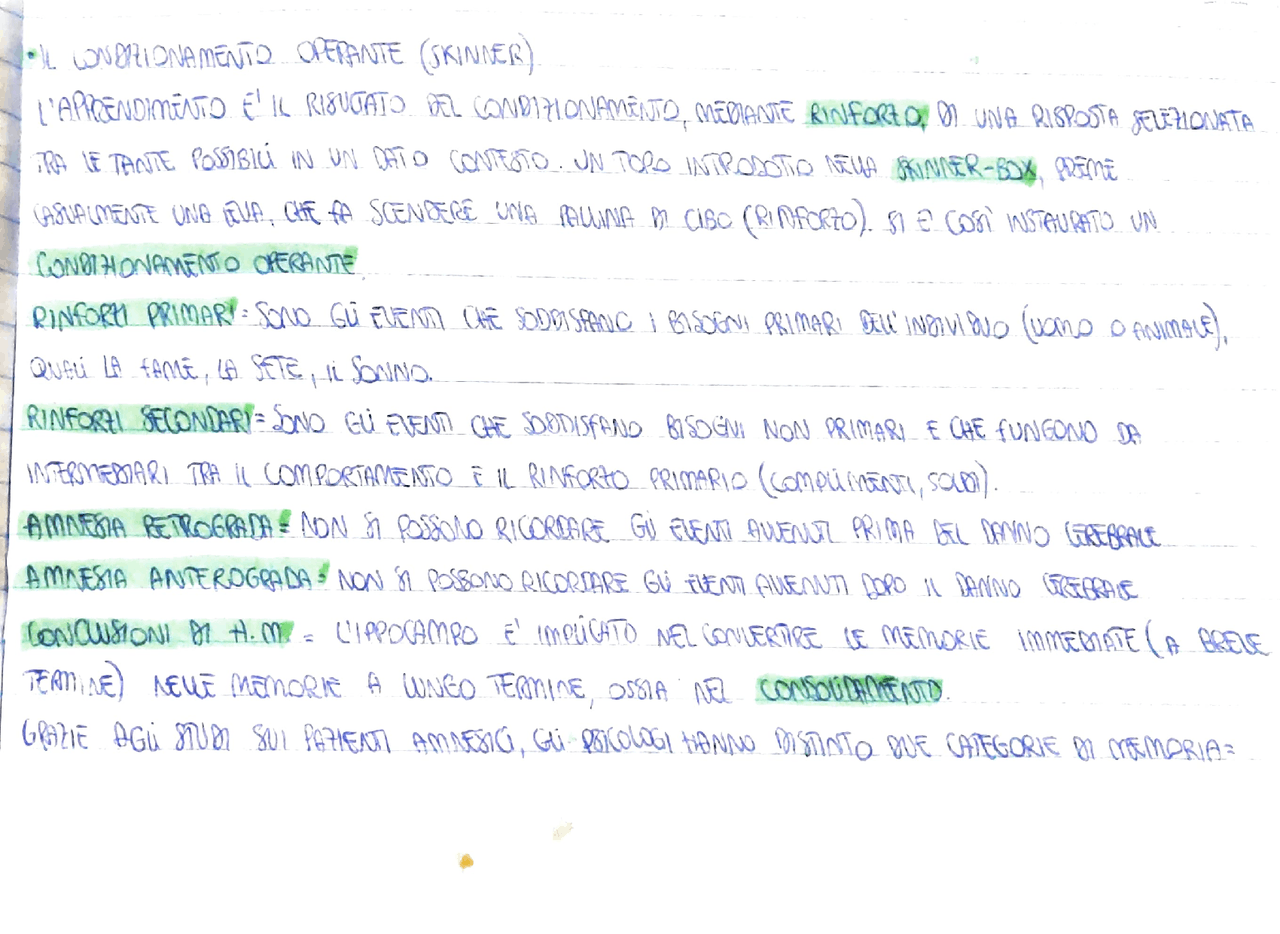 • IL CONDIZIONAMENTO OPERANTE (SKINNER)
L'APPRENDIMENTO E' IL RISULTATO DEL CONDIZIONAMENTO, MEDIANTE RINFORZO, DI UNA RISPOSTA SELEZIONATA
TRA LE TANTE POSSIBILI IN UN DATO CONTESTO. UN TOPO INTRODOTTO NELLA SKINNER-BOX, PREME
CASUALMENTE UNA LEVA, CHE FA SCENDERE UNA PALLINA DI CIBO (RINFORZO). SI E' COSÌ INSTAURATO UN
CONDIZIONAMENTO OPERANTE.
RINFORZI PRIMARI = SONO GLI EVENTI CHE SODDISFANO I BISOGNI PRIMARI DELL'INDIVIDUO (UOMO O ANIMALE),
QUALI LA FAME, LA SETE, IL SONNO.
RINFORZI SECONDARI = SONO GLI EVENTI CHE SODDISFANO BISOGNI NON PRIMARI E CHE FUNGONO DA
INTERMEDIARI TRA IL COMPORTAMENTO E IL RINFORZO PRIMARIO (COMPLIMENTI, SOLDI).
AMNESIA RETROGRADA = NON SI POSSONO RICORDARE GLI EVENTI AVVENUTI PRIMA DEL DANNO CEREBRALE
AMNESIA ANTEROGRADA = NON SI POSSONO RICORDARE GLI EVENTI AVVENUTI DOPO IL DANNO CEREBRALE
CONCLUSIONI DI H.M. = L'IPPOCAMPO E' IMPLICATO NEL CONVERTIRE LE MEMORIE IMMEDIATE (A BREVE
TERMINE) NELLE MEMORIE A LUNGO TERMINE, OSSIA NEL CONSOLIDAMENTO.
GRAZIE AGLI STUDI SUI PAZIENTI AMNESICI, GLI PSICOLOGI HANNO DISTINTO DUE CATEGORIE DI MEMORIA =